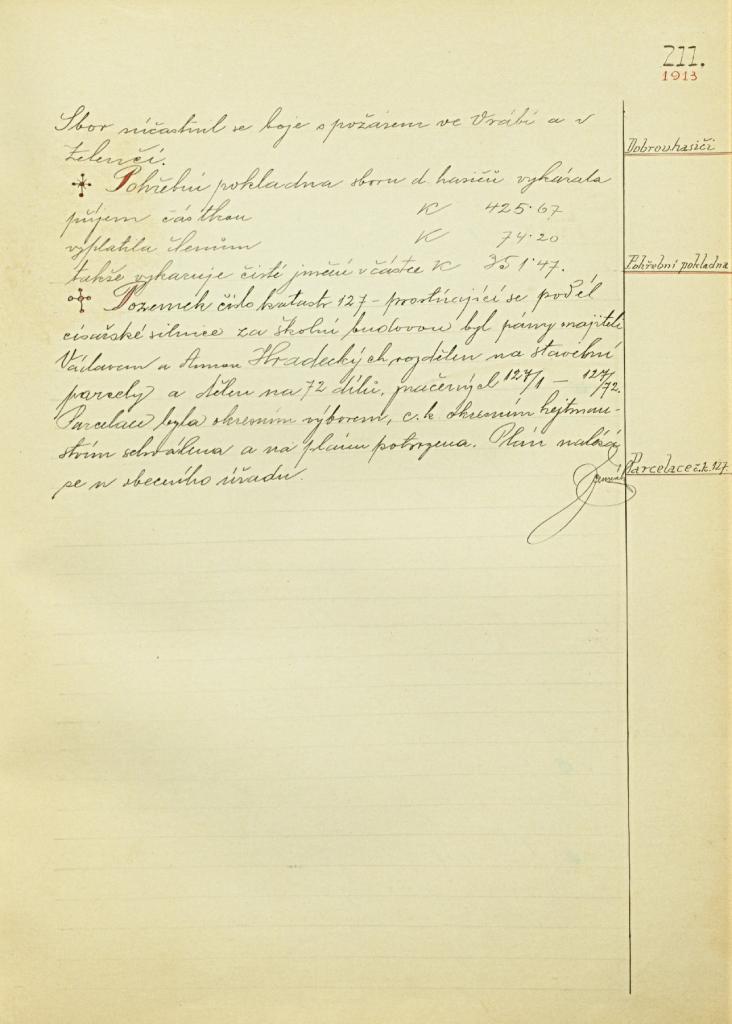 211.
1913
Sbor súčastnil se boje s požárem ve Vrábí a v
Zelenči.
Dobrov. hasiči
Pohřební pokladna sboru d. hasičů vykázala
příjem částkou K 425·67
vyplatila členům K 74·20
takže vykazuje čisté jmění v částce K 351·47.
Pohřební pokladna
Pozemek číslo katastr 127 – prostírající se podél
císařské silnice za školní budovou byl pány majiteli
Václavem a Annou Hradeckých, rozdělen na stavební
parcely a dělen na 72 dílů, značených 127/1 – 127/72.
Parcelace byla okresním výborem, c. k. okresním hejtman-
stvím schválena a na plánu potvrzena. Plán nalézá
se u obecního úřadu.
Parcelace č. k. 127.